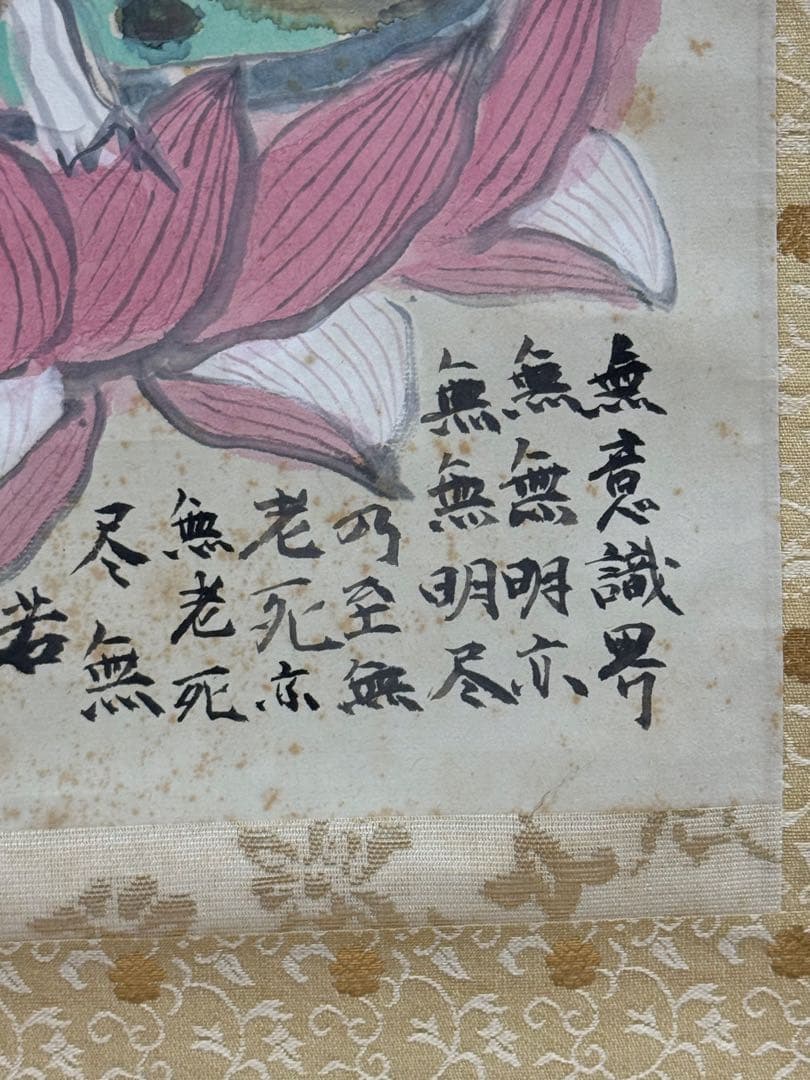 無意識界
無無明亦
無無明尽
乃至無
老死亦
無老死
尽無
苦